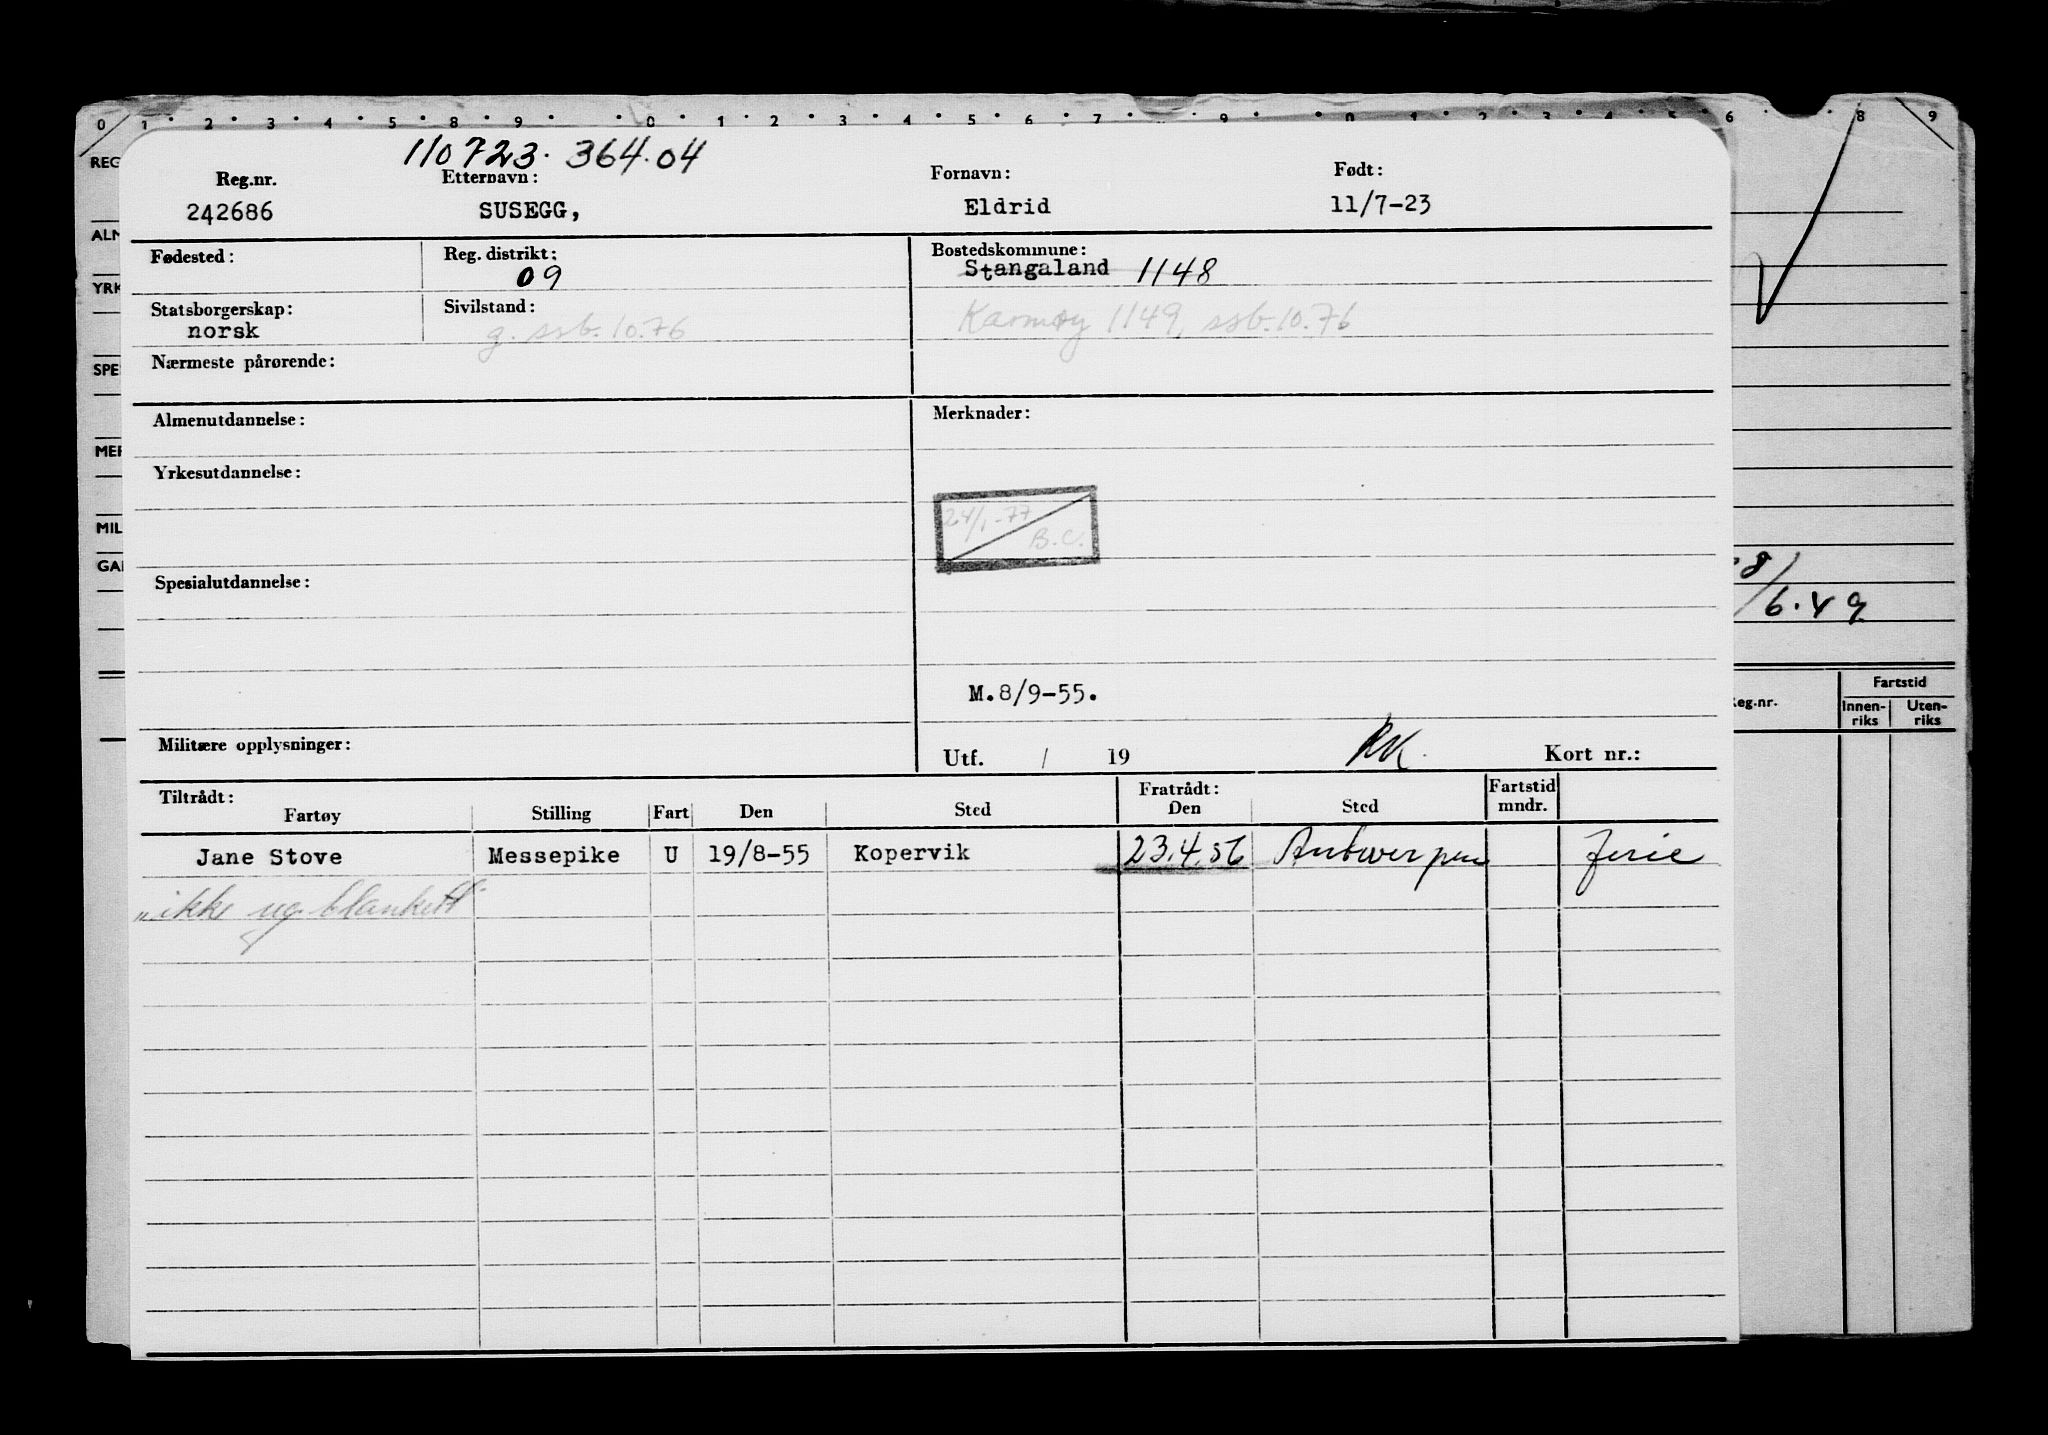 0 1 2 3 4 5 8 9 0 1 2 3 4 5 6 7 9 0 1 2 3 4 5 6 8 9
110723. 364.04
REG
Reg.nr. Etternavn: Fornavn: Født:
242686 SUSEGG, Eldrid 11/7-23
ALM
Fødested: Reg. distrikt: Bostedskommune:
09 Stangaland 1148
YRK
Statsborgerskap: Sivilstand:
norsk g. ssb. 10.76 Karmøy 1149, ssb. 10.76
Nærmeste pårørende:
SPE
Almenutdannelse: Merknader:
MER
Yrkesutdannelse:
MIL
24/1-77
B.C.
GA
8/
6.49
Spesialutdannelse:
M.8/9-55.
Fartstid
eg.nr. Innen-riks Uten-riks
Militære opplysninger: Utf. / 19 RK. Kort nr.:
Tiltrådt: Fratrådt: Fartstid
Fartøy Stilling Fart Den Sted Den Sted mndr.
Jane Stove Messepike U 19/8-55 Kopervik 23.4.56 Antwerpen ferie
"ikke ug. blankett"